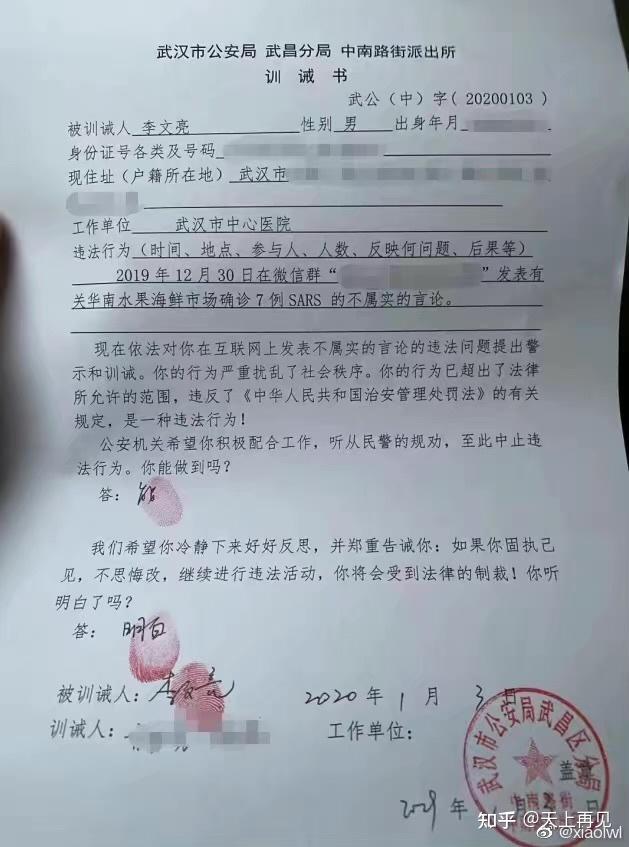 武汉市公安局 武昌分局 中南路街派出所
训 诫 书
武公（中）字（20200103）
被训诫人 李文亮 性别 男 出身年月
身份证号各类及号码
现住址（户籍所在地） 武汉市
工作单位 武汉市中心医院
违法行为（时间、地点、参与人、人数、反映何问题、后果等）
2019年12月30日在微信群“ ”发表有
关华南水果海鲜市场确诊7例SARS的不属实的言论。
现在依法对你在互联网上发表不属实的言论的违法问题提出警
示和训诫。你的行为严重扰乱了社会秩序。你的行为已超出了法律
所允许的范围，违反了《中华人民共和国治安管理处罚法》的有关
规定，是一种违法行为！
公安机关希望你积极配合工作，听从民警的规劝，至此中止违
法行为。你能做到吗？
答：能
我们希望你冷静下来好好反思，并郑重告诫你：如果你固执己
见，不思悔改，继续进行违法活动，你将会受到法律的制裁！你听
明白了吗？
答：明白
被训诫人：李文亮 2020年1月3日
训诫人： 工作单位：
武汉市公安局武昌区分局
盖章
中南路街
年 月 日
知乎 @天上再见
@xiaolwl